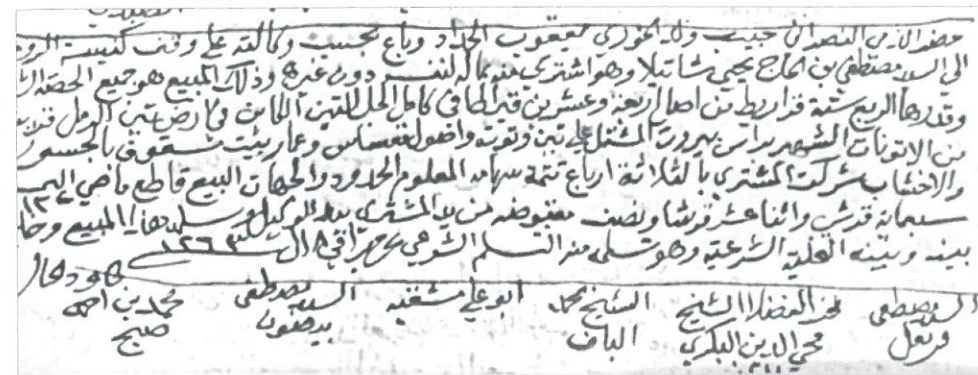 حضر الذمي النصراني حبيب ولد الخوري يعقوب الحداد وباع بحسب وكالته على وقف كنيسة الروم
الى السيد مصطفى بن الحاج يحيى شاتيلا وهو اشترى منه بماله لنفسه دون غيره وذلك المبيع هو جميع الحصة
وقدرها الربع ستة قراريط من اصل اربعة وعشرين قيراطا في كامل الجل الكاين في ارض تين الرمل
من الاتونات الشهير براس بيروت المشتمل على تين وتوت واصول وعمار بيت مسقوف بالجسور
والاخشاب شركت المشتري بالثلاثة ارباع تتمة سهامه المعلوم الحدود والجهات البيع قاطع ماضي
سبعماية قرش واثنا عشر قرشا ونصف مقبوضه من يد المشتري بيد الوكيل هذا المبيع
بينه وبينه التخلية الشرعية وهو تسلمه منه التسلم الشرعي ١٢٦٣
شهود الحال
السيد مصطفى قرنفل
فخر الفضلا الشيخ محي الدين البكري
الشيخ محمد
ابو علي
السيد مصطفى بيضون
محمد بن احمد صبح